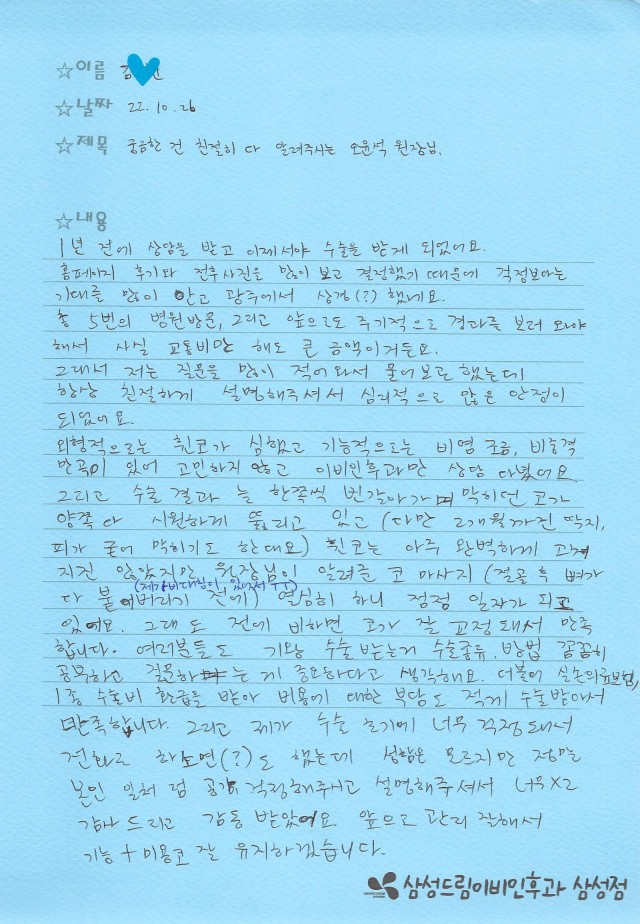 ☆이름 김
☆날짜 22.10.26
☆제목 궁금한 건 친절히 다 알려주시는 오윤석 원장님.
☆내용
1년 전에 상담을 받고 이제서야 수술을 받게 되었어요.
홈페이지 후기와 전후사진을 많이 보고 결정했기 때문에 걱정보다는
기대를 많이 안고 광주에서 상경(?) 했네요.
총 5번의 병원방문, 그리고 앞으로도 주기적으로 경과를 보러 와야
해서 사실 교통비만 해도 큰 금액이거든요.
그래서 저는 질문을 많이 적어와서 물어보곤 했는데
항상 친절하게 설명해주셔서 심리적으로 많은 안정이
되었어요.
외형적으로는 휜코가 심했고 기능적으로는 비염 수술, 비중격
만곡이 있어 고민하지 않고 이비인후과만 상담 다녔어요.
그리고 수술 결과 늘 한쪽씩 번갈아가며 막히던 코가
양쪽 다 시원하게 뚫리고 있고 (다만 2개월까진 딱지,
피가 굳어 막히기도 한대요) 휜코는 아주 완벽하게 고쳐
지진 않았지만 원장님이 알려준 코 마사지 (절골 후 뼈가
(제가 비대칭이 있어서ㅜㅜ)
다 붙어버리기 전에) 열심히 하니 점점 일자가 되고
있어요. 그래도 전에 비하면 코가 잘 교정돼서 만족
합니다. 여러분들도 기왕 수술 받는거 수술종류, 방법 꼼꼼히
공부하고 질문하는 게 중요하다고 생각해요. 더불어 실손의료보험,
1종 수술비 환급을 받아 비용에 대한 부담도 적게 수술받아서
만족합니다. 그리고 제가 수술 초기에 너무 걱정돼서
전화로 하소연(?)도 했는데 성함은 모르지만 정말
본인 일처럼 공감, 걱정해주시고 설명해주셔서 너무X2
감사드리고 감동 받았어요. 앞으로 관리 잘해서
기능+미용코 잘 유지하겠습니다.
삼성드림이비인후과 삼성점